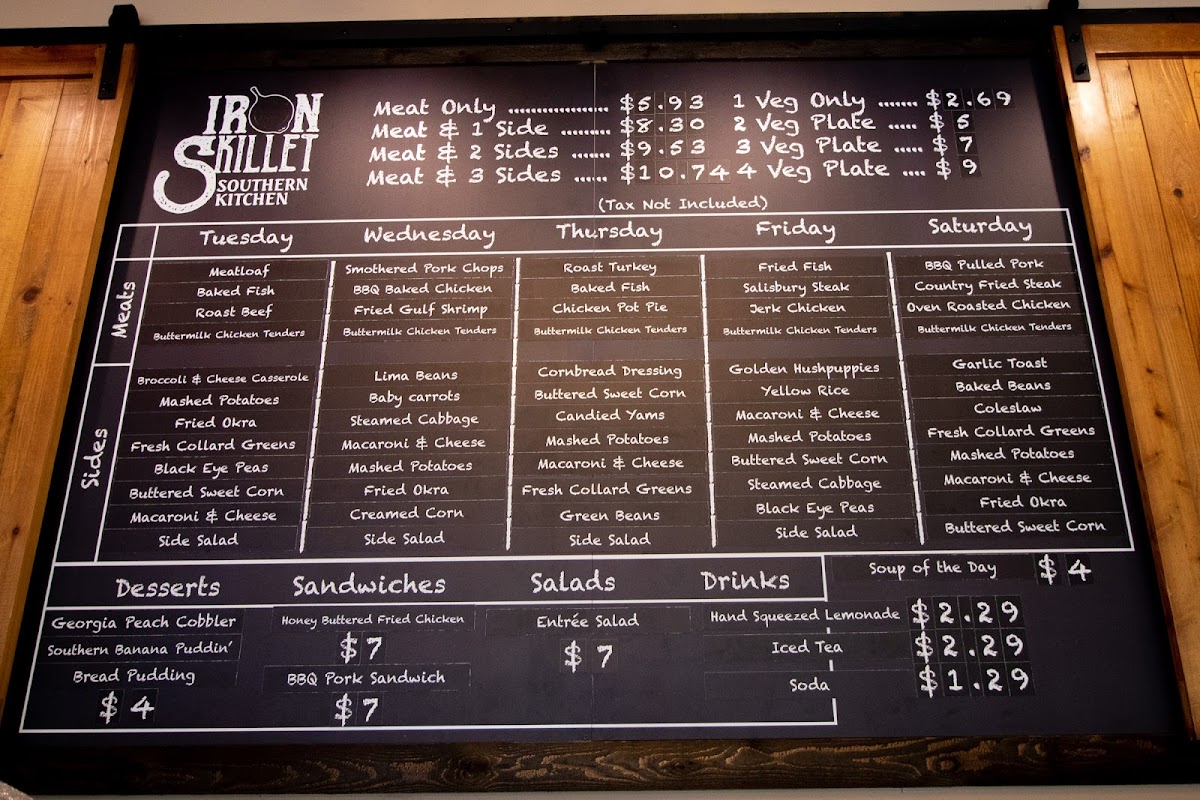 IRON
SKILLET
SOUTHERN
KITCHEN
Meat Only ................. $5.93 1 Veg Only ....... $2.69
Meat & 1 Side ......... $8.30 2 Veg Plate ..... $5
Meat & 2 Sides ....... $9.53 3 Veg Plate ..... $7
Meat & 3 Sides ...... $10.74 4 Veg Plate .... $9
(Tax Not Included)
Tuesday Wednesday Thursday Friday Saturday
Meats
Meatloaf Smothered Pork Chops Roast Turkey Fried Fish BBQ Pulled Pork
Baked Fish BBQ Baked Chicken Baked Fish Salisbury Steak Country Fried Steak
Roast Beef Fried Gulf Shrimp Chicken Pot Pie Jerk Chicken Oven Roasted Chicken
Buttermilk Chicken Tenders Buttermilk Chicken Tenders Buttermilk Chicken Tenders Buttermilk Chicken Tenders Buttermilk Chicken Tenders
Sides
Broccoli & Cheese Casserole Lima Beans Cornbread Dressing Golden Hushpuppies Garlic Toast
Mashed Potatoes Baby carrots Buttered Sweet Corn Yellow Rice Baked Beans
Fried Okra Steamed Cabbage Candied Yams Macaroni & Cheese Coleslaw
Fresh Collard Greens Macaroni & Cheese Mashed Potatoes Mashed Potatoes Fresh Collard Greens
Black Eye Peas Mashed Potatoes Macaroni & Cheese Buttered Sweet Corn Mashed Potatoes
Buttered Sweet Corn Fried Okra Fresh Collard Greens Steamed Cabbage Macaroni & Cheese
Macaroni & Cheese Creamed Corn Green Beans Black Eye Peas Fried Okra
Side Salad Side Salad Side Salad Side Salad Buttered Sweet Corn
Desserts Sandwiches Salads Drinks Soup of the Day $4
Georgia Peach Cobbler Honey Buttered Fried Chicken Entrée Salad Hand Squeezed Lemonade $2.29
Southern Banana Puddin' $7 $7 Iced Tea $2.29
Bread Pudding BBQ Pork Sandwich Soda $1.29
$4 $7